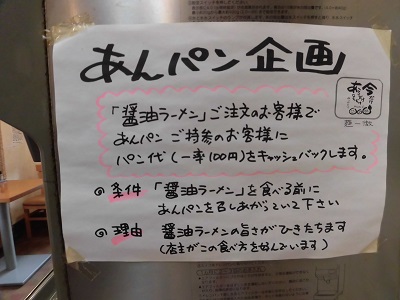 あんパン企画
「醤油ラーメン」ご注文のお客様で
あんパンご持参のお客様に
パン代(一律100円)をキャッシュバックします。
◎条件 「醤油ラーメン」を食べる前に
あんパンを召しあがっていて下さい
◎理由 醤油ラーメンの旨さがひきたちます
(店主がこの食べ方を好んでいます)